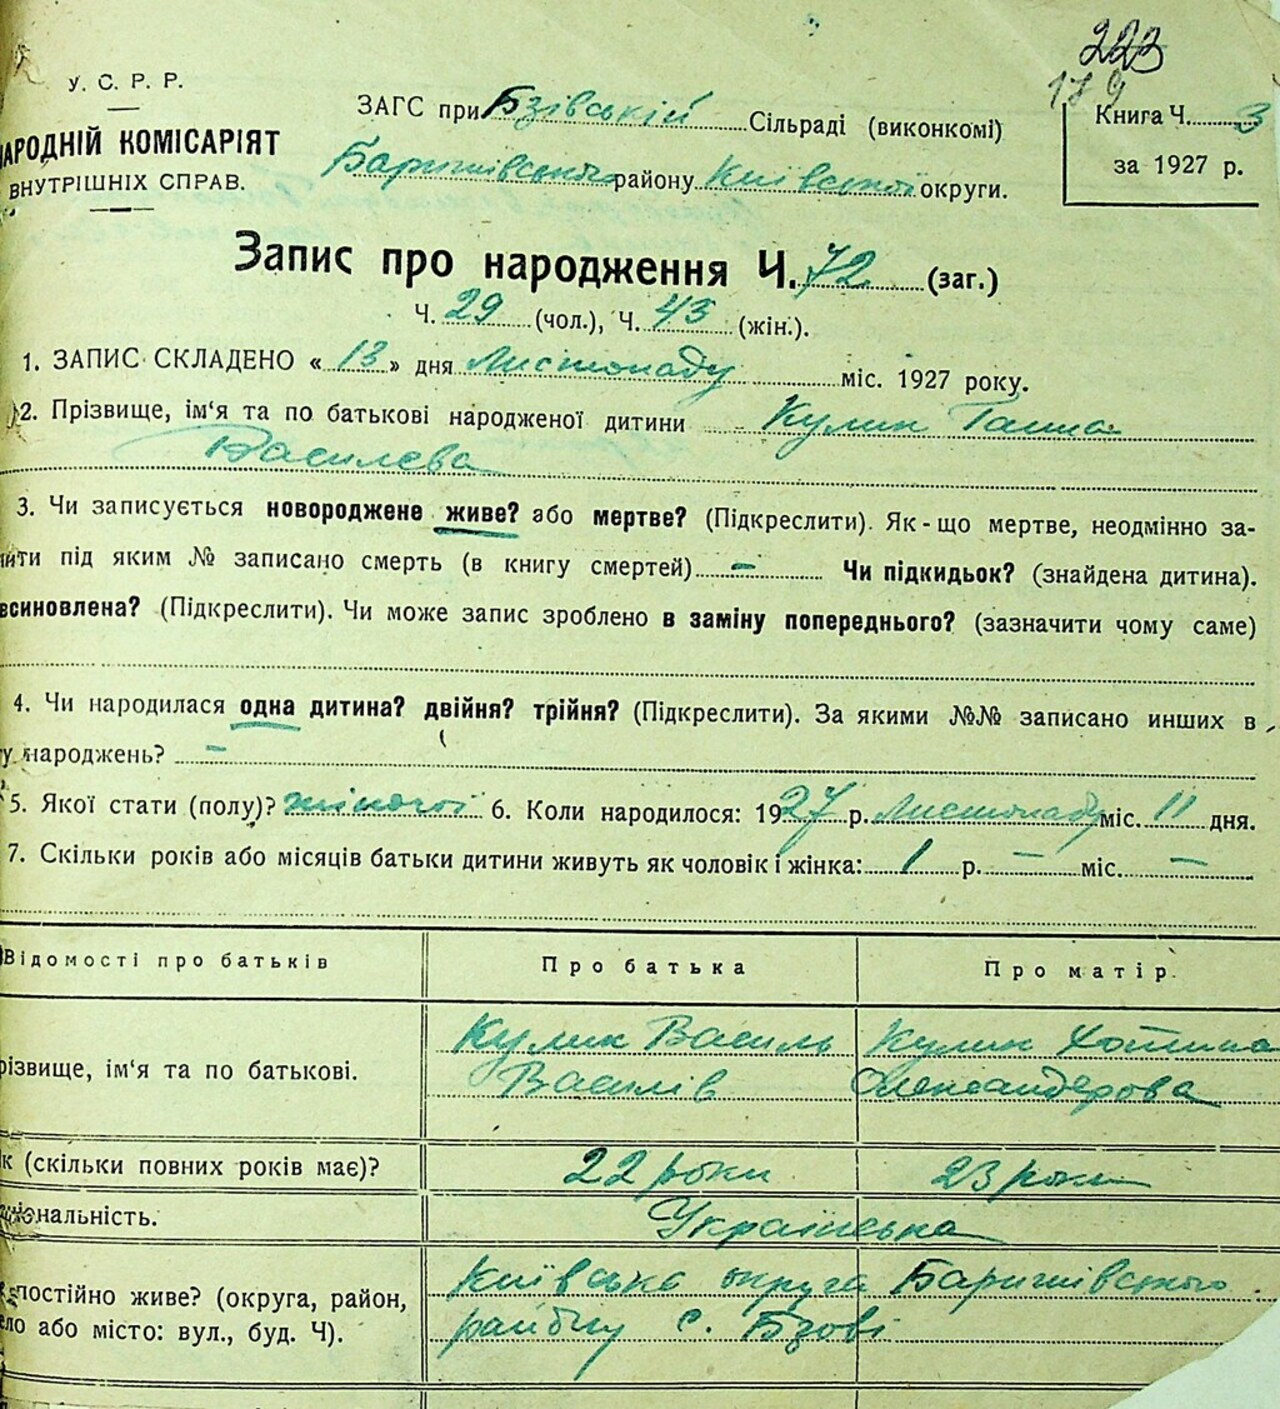 223
179
У. С. Р. Р.
НАРОДНІЙ КОМІСАРІЯТ
ВНУТРІШНІХ СПРАВ.
ЗАГС при Бзівській Сільраді (виконкомі)
Баришівського району Київської округи.
Книга Ч. 3
за 1927 р.
Запис про народження Ч. 72 (заг.)
Ч. 29 (чол.), Ч. 43 (жін.).
1. ЗАПИС СКЛАДЕНО « 13 » дня Листопаду міс. 1927 року.
2. Прізвище, ім'я та по батькові народженої дитини Кулик Ганна
Василева
3. Чи записується новороджене живе? або мертве? (Підкреслити). Як-що мертве, неодмінно за-
під яким № записано смерть (в книгу смертей) – Чи підкидьок? (знайдена дитина).
всиновлена? (Підкреслити). Чи може запис зроблено в заміну попереднього? (зазначити чому саме)
4. Чи народилася одна дитина? двійня? трійня? (Підкреслити). За якими №№ записано инших в
у народжень? –
5. Якої стати (полу)? жіночої 6. Коли народилось: 1927 р. Листопаду міс. 11 дня.
7. Скільки років або місяців батьки дитини живуть як чоловік і жінка: 1 р. – міс. –
Відомості про батьків
Про батька
Про матір.
різвище, ім'я та по батькові.
Кулик Василь
Василів
Кулик Хотина
Олександерова
к (скільки повних років має)?
22 роки
23 роки
ціональність.
Українська
постійно живе? (округа, район,
ло або місто: вул., буд. Ч).
Київська округа Баришівського
району с. Бзові